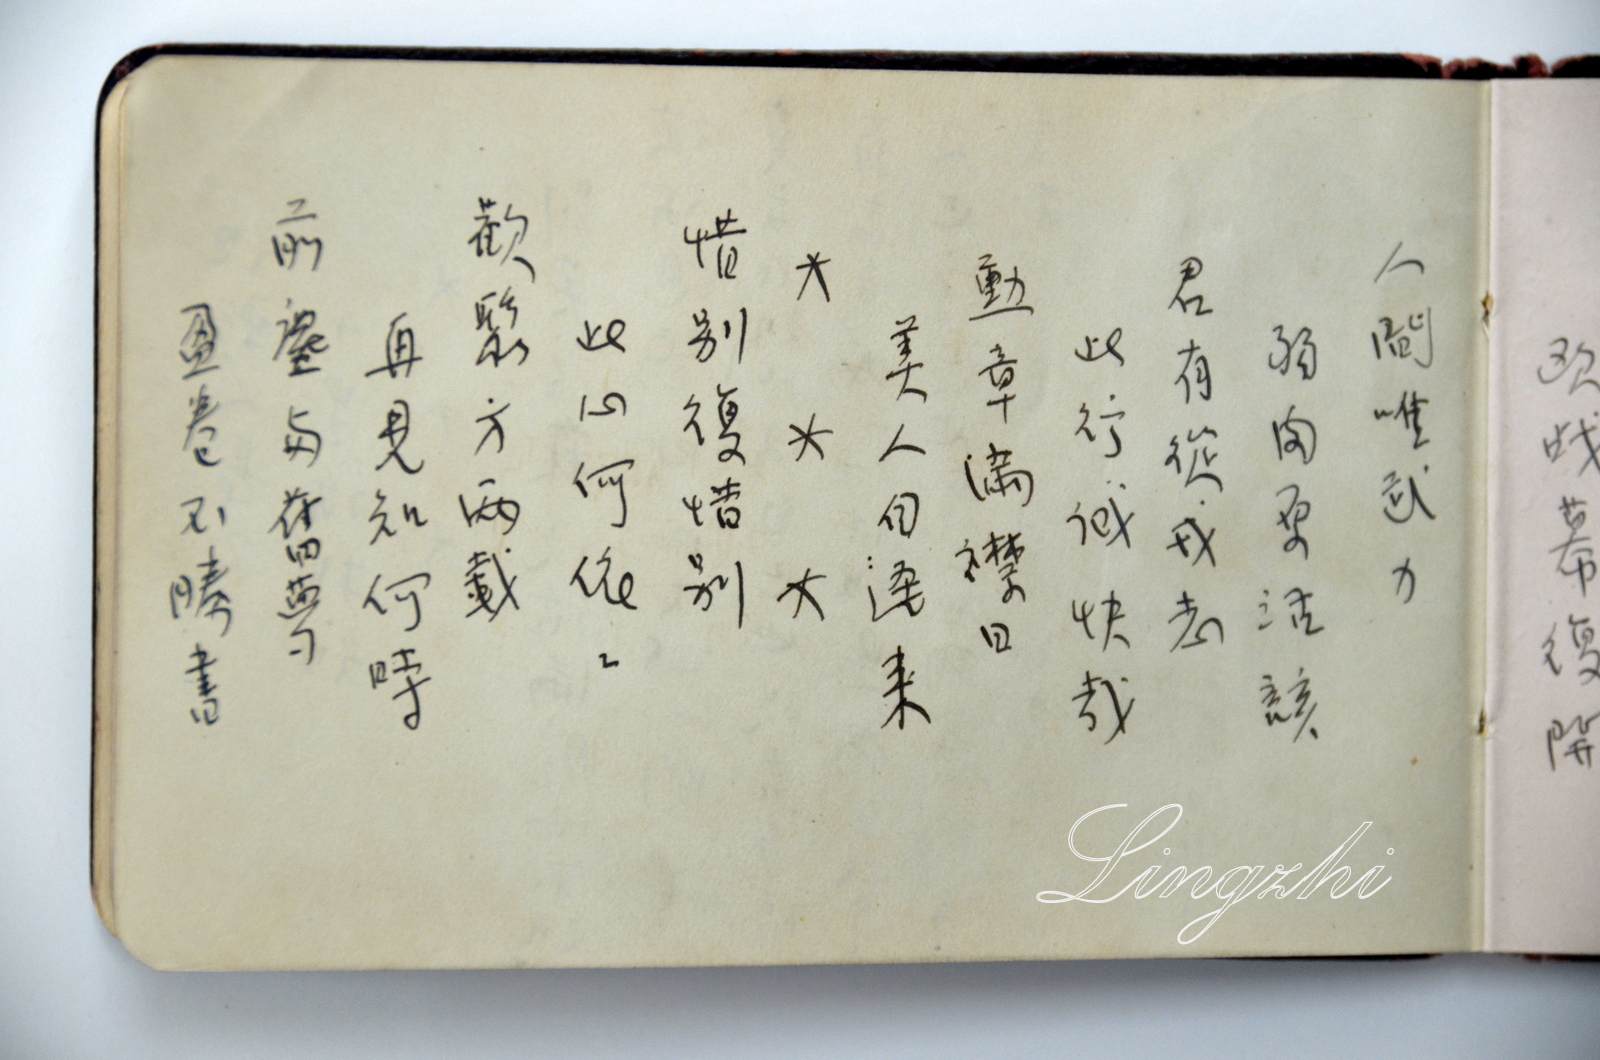 欧战幕復開
人間唯武力
弱肉更活該
君有從戎志
此行誠快哉
勳章滿襟日
美人自遠來
* * *
惜别復惜别
此心何依〻
歡聚方兩載
再見知何時
前塵與舊夢
盈卷不勝書
Lingzhi